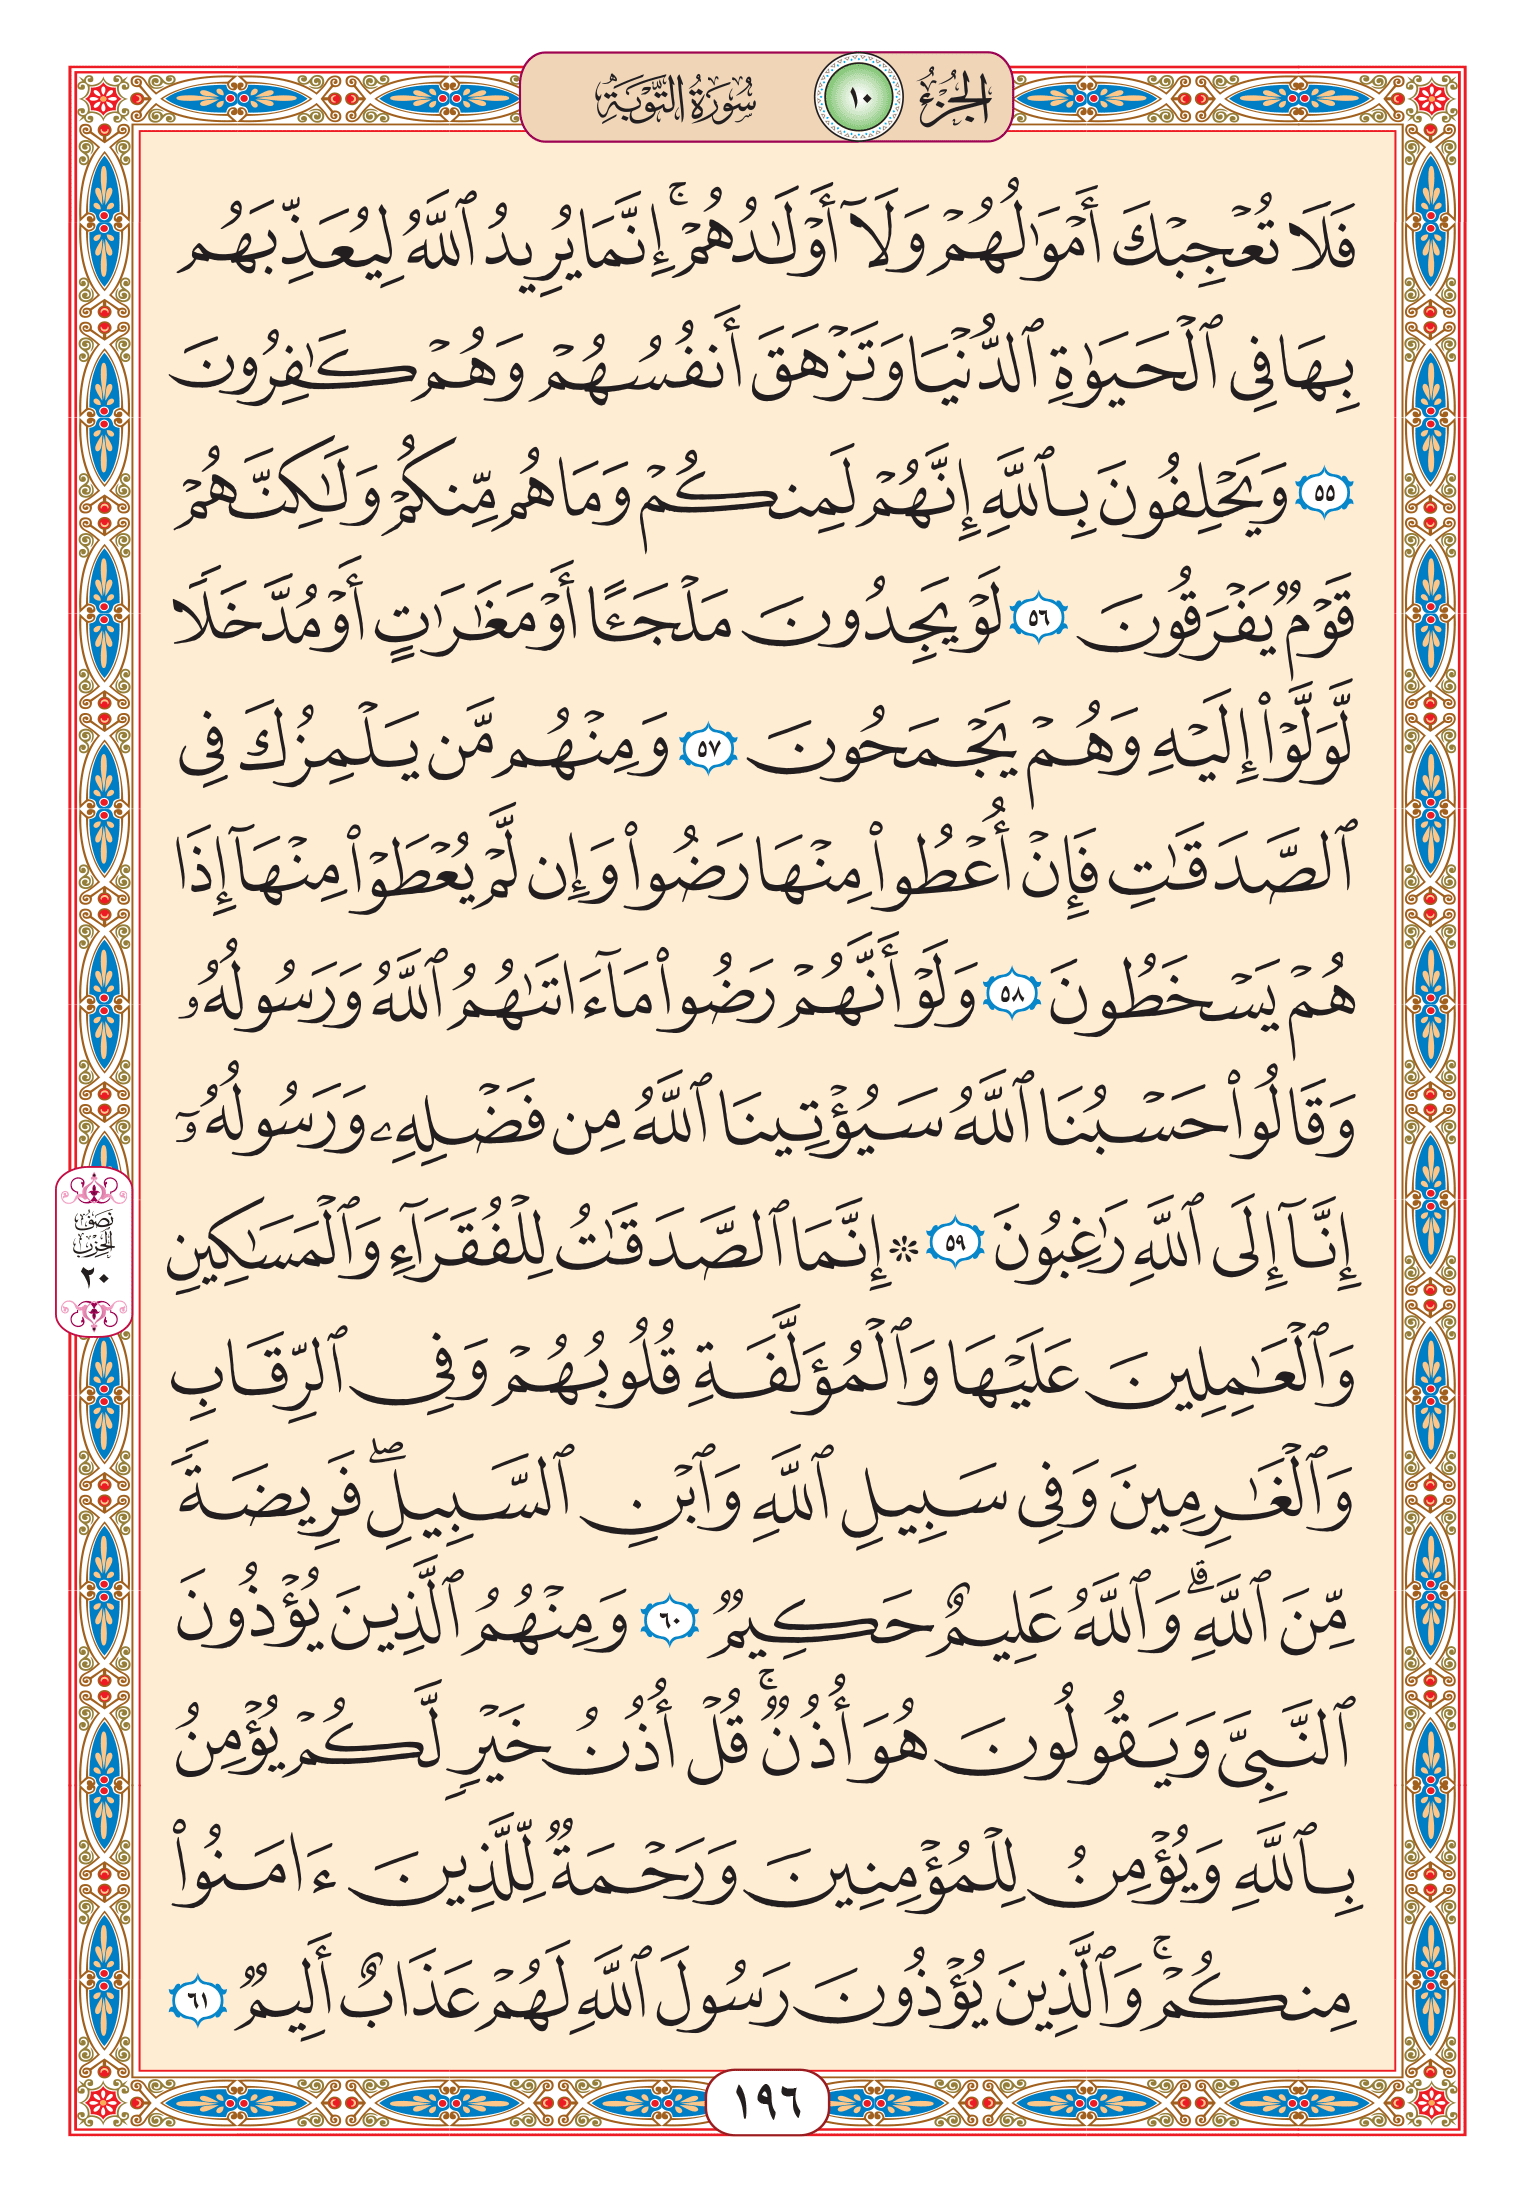 الجزء ١٠ سورة التوبة
فَلَا تُعۡجِبۡكَ أَمۡوَٰلُهُمۡ وَلَآ أَوۡلَٰدُهُمۡۚ إِنَّمَا يُرِيدُ ٱللَّهُ لِيُعَذِّبَهُم
بِهَا فِي ٱلۡحَيَوٰةِ ٱلدُّنۡيَا وَتَزۡهَقَ أَنفُسُهُمۡ وَهُمۡ كَٰفِرُونَ
٥٥ وَيَحۡلِفُونَ بِٱللَّهِ إِنَّهُمۡ لَمِنكُمۡ وَمَا هُم مِّنكُمۡ وَلَٰكِنَّهُمۡ
قَوۡمٞ يَفۡرَقُونَ ٥٦ لَوۡ يَجِدُونَ مَلۡجَـًٔا أَوۡ مَغَٰرَٰتٍ أَوۡ مُدَّخَلٗا
لَّوَلَّوۡاْ إِلَيۡهِ وَهُمۡ يَجۡمَحُونَ ٥٧ وَمِنۡهُم مَّن يَلۡمِزُكَ فِي
ٱلصَّدَقَٰتِ فَإِنۡ أُعۡطُواْ مِنۡهَا رَضُواْ وَإِن لَّمۡ يُعۡطَوۡاْ مِنۡهَآ إِذَا
هُمۡ يَسۡخَطُونَ ٥٨ وَلَوۡ أَنَّهُمۡ رَضُواْ مَآ ءَاتَىٰهُمُ ٱللَّهُ وَرَسُولُهُۥ
وَقَالُواْ حَسۡبُنَا ٱللَّهُ سَيُؤۡتِينَا ٱللَّهُ مِن فَضۡلِهِۦ وَرَسُولُهُۥٓ
إِنَّآ إِلَى ٱللَّهِ رَٰغِبُونَ ٥٩ ۞ إِنَّمَا ٱلصَّدَقَٰتُ لِلۡفُقَرَآءِ وَٱلۡمَسَٰكِينِ
وَٱلۡعَٰمِلِينَ عَلَيۡهَا وَٱلۡمُؤَلَّفَةِ قُلُوبُهُمۡ وَفِي ٱلرِّقَابِ
وَٱلۡغَٰرِمِينَ وَفِي سَبِيلِ ٱللَّهِ وَٱبۡنِ ٱلسَّبِيلِۖ فَرِيضَةٗ
مِّنَ ٱللَّهِۗ وَٱللَّهُ عَلِيمٌ حَكِيمٞ ٦٠ وَمِنۡهُمُ ٱلَّذِينَ يُؤۡذُونَ
ٱلنَّبِيَّ وَيَقُولُونَ هُوَ أُذُنٞۚ قُلۡ أُذُنُ خَيۡرٖ لَّكُمۡ يُؤۡمِنُ
بِٱللَّهِ وَيُؤۡمِنُ لِلۡمُؤۡمِنِينَ وَرَحۡمَةٞ لِّلَّذِينَ ءَامَنُواْ
مِنكُمۡۚ وَٱلَّذِينَ يُؤۡذُونَ رَسُولَ ٱللَّهِ لَهُمۡ عَذَابٌ أَلِيمٞ ٦١
نصف
الحزب
٢٠
١٩٦